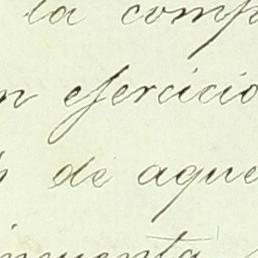 la comp
n ejercicio
de aque
incuenta